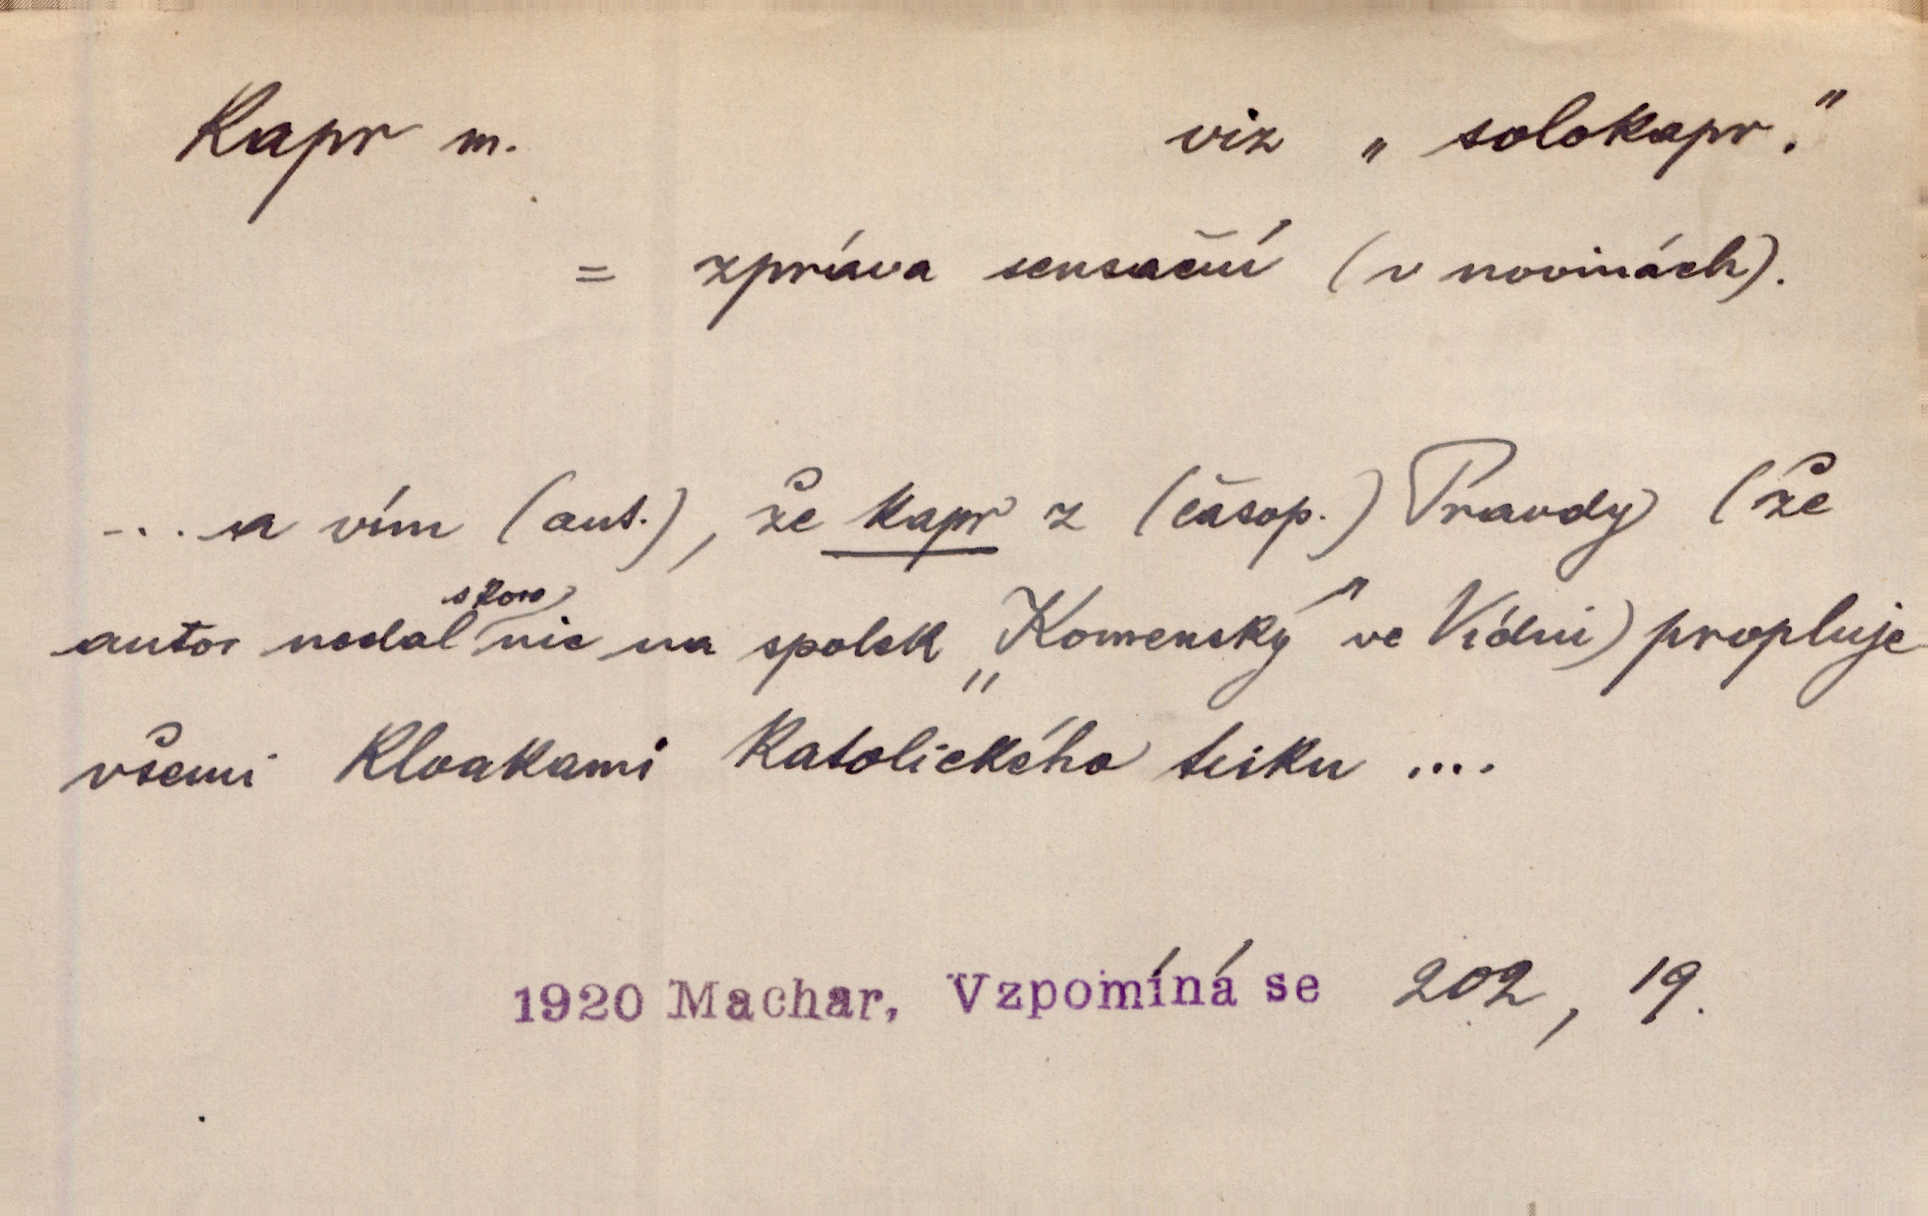 Kapr m. viz „solokapr."
= zpráva sensační (v novinách).
-... a vím (aut.), že kapr z (časop.) Pravdy (že
autor nedal skoro nic na spolek „Komenský" ve Vídni) propluje
všemi kloakami katolického tisku ....
1920 Machar, Vzpomíná se 202, 19.